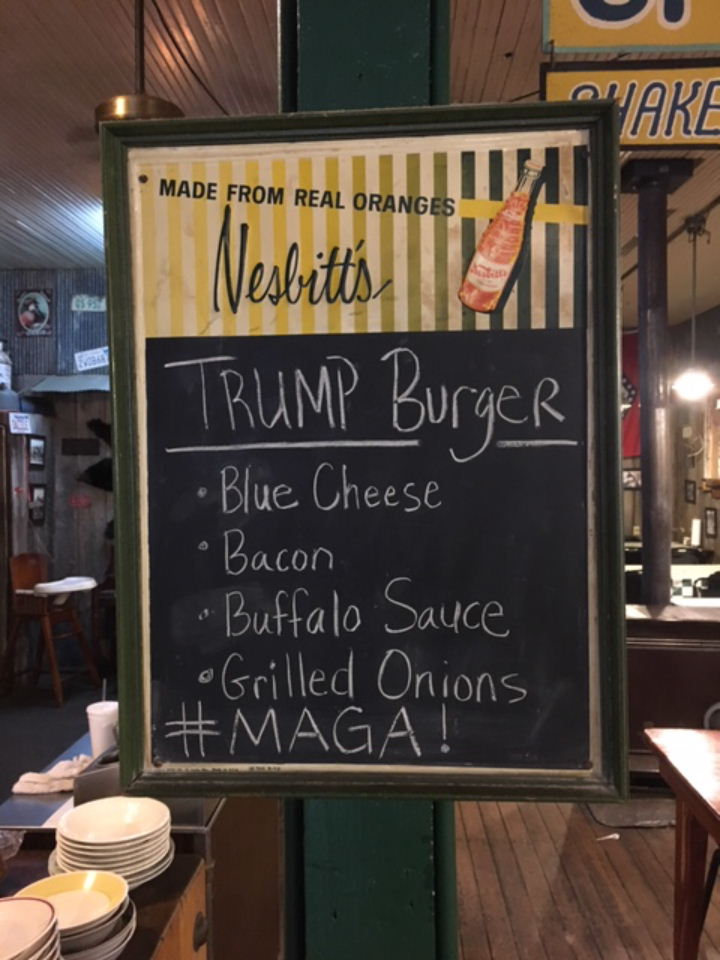 SHAKE
MADE FROM REAL ORANGES
Nesbitt's
TRUMP BurgeR
• Blue Cheese
• Bacon
• Buffalo Sauce
• Grilled Onions
#MAGA!